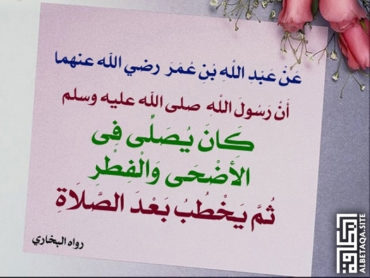 عَنْ عَبْدِ اللَّهِ بْنِ عُمَرَ رضي الله عنهما
أَنَّ رَسُولَ اللَّه صلى الله عليه وسلم
كَانَ يُصَلِّى فِى
الأَضْحَى وَالْفِطْرِ
ثُمَّ يَخْطُبُ بَعْدَ الصَّلَاةِ
رواه البخاري
البطاقة
ALBETAQA.SITE